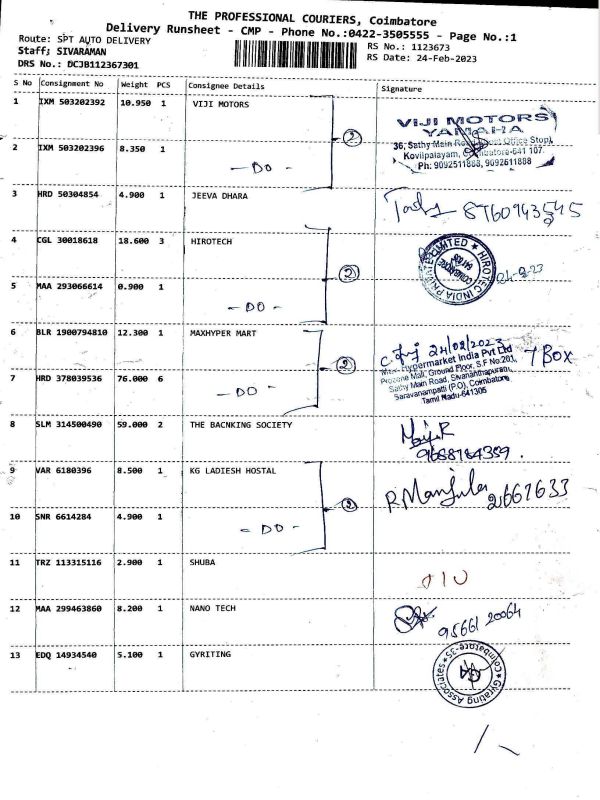 THE PROFESSIONAL COURIERS, Coimbatore
Delivery Runsheet - CMP - Phone No.:0422-3505555 - Page No.:1
Route: SPT AUTO DELIVERY
Staff; SIVARAMAN
DRS No.: DCJB112367301
RS No.: 1123673
RS Date: 24-Feb-2023
S No Consignment No Weight PCS Consignee Details Signature
1 IXM 503202392 10.950 1 VIJI MOTORS
2
VIJI MOTORS
YAMAHA
36, Sathy Main Post Office Stop)
Kovilpalayam, Coimbatore-641 107.
Ph: 9092511888, 9092611888
2 IXM 503202396 8.350 1
- DO -
3 HRD 50304854 4.900 1 JEEVA DHARA
8760943545
4 CGL 30018618 18.600 3 HIROTECH
2
HIROTEC INDIA PRIVATE LIMITED
COIMBATORE
24-2-23
5 MAA 293066614 0.900 1
- DO -
6 BLR 1900794810 12.300 1 MAXHYPER MART
2
24/02/2023
7 BOX
Max Hypermarket India Pvt Ltd
Prozone Mall, Ground Floor, S.F No.201,
Sathy Main Road, Sivananthapuram,
Saravanampatti (P.O), Coimbatore
Tamil Nadu-641305
7 HRD 378039536 76.000 6
- DO -
8 SLM 314500490 59.000 2 THE BACNKING SOCIETY
9 VAR 6180396 8.500 1 KG LADIESH HOSTAL
2
R Manjula
2667633
10 SNR 6614284 4.900 1
- DO -
11 TRZ 113315116 2.900 1 SHUBA
12 MAA 299463860 8.200 1 NANO TECH
9566120064
13 EDQ 14934540 5.100 1 GYRITING
Gyrating Associates
Coimbatore-35
GA